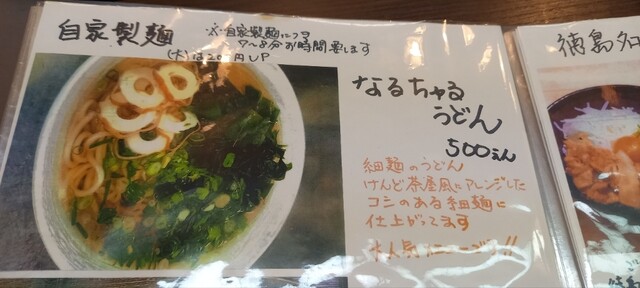 自家製麺
※自家製麺につき
7〜8分お時間要します
(大)は200円UP
なるちゃる
うどん
500えん
細麺のうどん
けんど茶屋風にアレンジした
コシのある細麺に
仕上がってます
大人気
徳島名